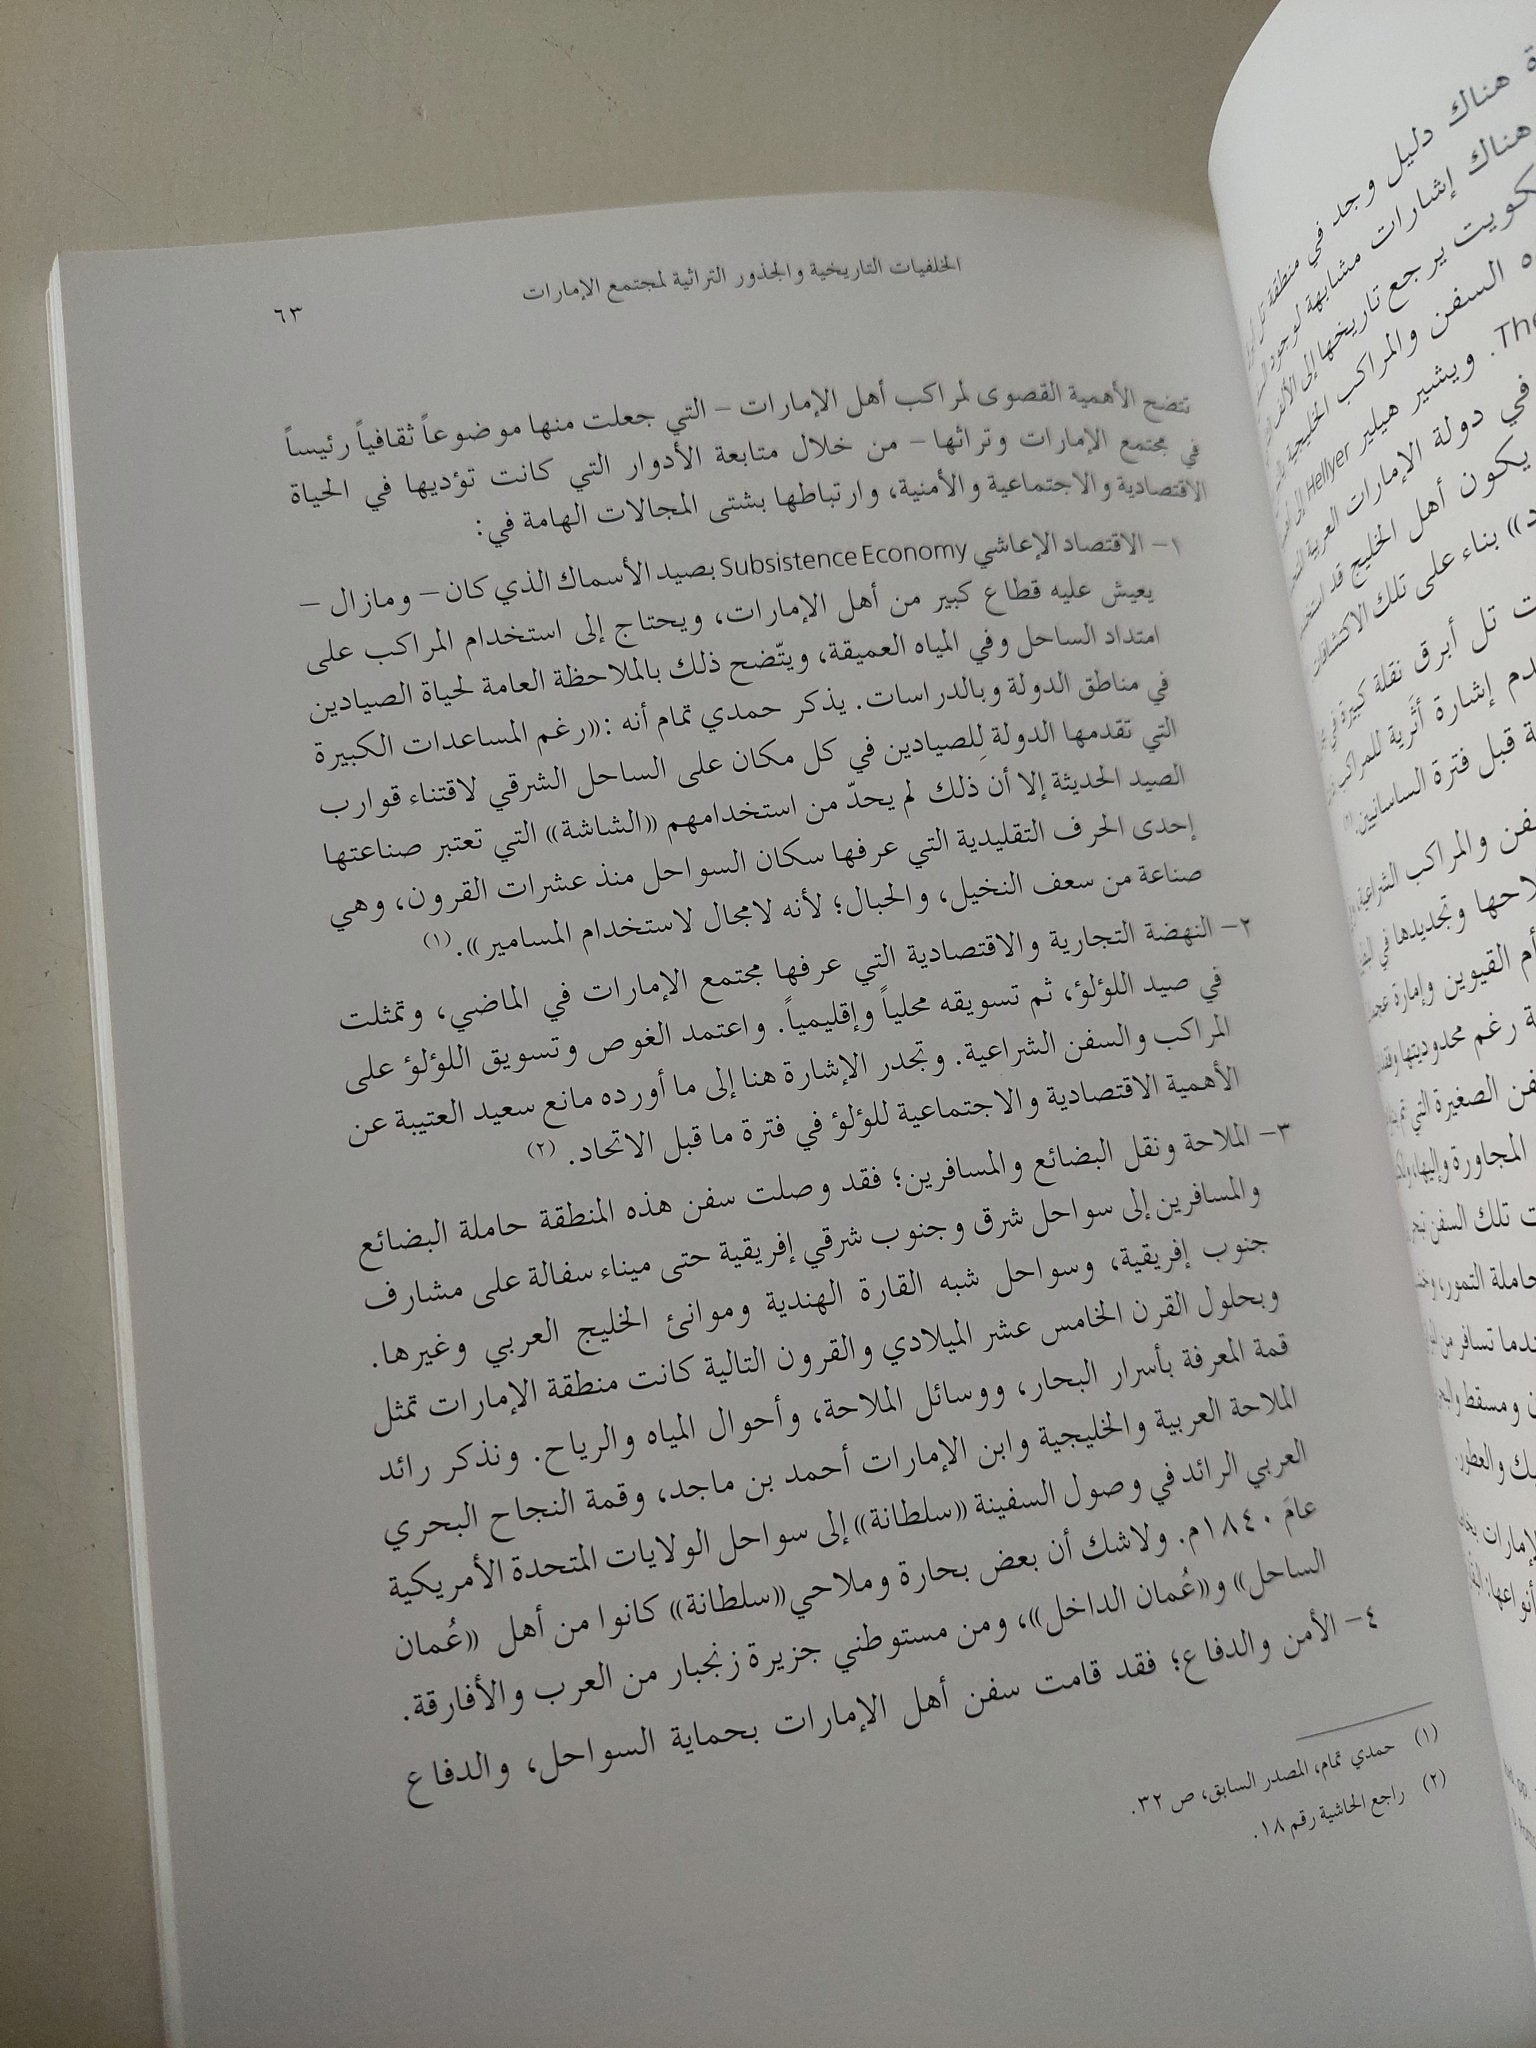 الخلفيات التاريخية والجذور التراثية لمجتمع الإمارات
٦٣
تتضح الأهمية القصوى لمراكب أهل الإمارات – التي جعلت منها موضوعاً ثقافياً رئيساً
في مجتمع الإمارات وتراثها – من خلال متابعة الأدوار التي كانت تؤديها في الحياة
الاقتصادية والاجتماعية والأمنية، وارتباطها بشتى المجالات الهامة في:
١– الاقتصاد الإعاشي Subsistence Economy بصيد الأسماك الذي كان – ومازال –
يعيش عليه قطاع كبير من أهل الإمارات، ويحتاج إلى استخدام المراكب على
امتداد الساحل وفي المياه العميقة، ويتّضح ذلك بالملاحظة العامة لحياة الصيادين
في مناطق الدولة وبالدراسات. يذكر حمدي تمام أنه :«رغم المساعدات الكبيرة
التي تقدمها الدولة لِلصيادين في كل مكان على الساحل الشرقي لاقتناء قوارب
الصيد الحديثة إلا أن ذلك لم يحدّ من استخدامهم «الشاشة» التي تعتبر صناعتها
إحدى الحرف التقليدية التي عرفها سكان السواحل منذ عشرات القرون، وهي
صناعة من سعف النخيل، والحبال؛ لأنه لامجال لاستخدام المسامير». (١)
٢– النهضة التجارية والاقتصادية التي عرفها مجتمع الإمارات في الماضي، وتمثلت
في صيد اللؤلؤ، ثم تسويقه محلياً وإقليمياً. واعتمد الغوص وتسويق اللؤلؤ على
المراكب والسفن الشراعية. وتجدر الإشارة هنا إلى ما أورده مانع سعيد العتيبة عن
الأهمية الاقتصادية والاجتماعية للؤلؤ في فترة ما قبل الاتحاد. (٢)
٣– الملاحة ونقل البضائع والمسافرين؛ فقد وصلت سفن هذه المنطقة حاملة البضائع
والمسافرين إلى سواحل شرق وجنوب شرقي إفريقية حتى ميناء سفالة على مشارف
جنوب إفريقية، وسواحل شبه القارة الهندية وموانئ الخليج العربي وغيرها.
وبحلول القرن الخامس عشر الميلادي والقرون التالية كانت منطقة الإمارات تمثل
قمة المعرفة بأسرار البحار، ووسائل الملاحة، وأحوال المياه والرياح. ونذكر رائد
الملاحة العربية والخليجية وابن الإمارات أحمد بن ماجد، وقمة النجاح البحري
العربي الرائد في وصول السفينة «سلطانة» إلى سواحل الولايات المتحدة الأمريكية
عامَ ١٨٤٠م. ولاشك أن بعض بحارة وملاحي«سلطانة» كانوا من أهل «عُمان
الساحل» و«عُمان الداخل»، ومن مستوطني جزيرة زنجبار من العرب والأفارقة.
٤– الأمن والدفاع؛ فقد قامت سفن أهل الإمارات بحماية السواحل، والدفاع
(١) حمدي تمام، المصدر السابق، ص ٣٢.
(٢) راجع الحاشية رقم ١٨.
هناك دليل وجد في منطقة تل
هناك إشارات مشابهة لوجود
يرجع تاريخها إلى الألف
السفن والمراكب الخليجية
ويشير هيلير Hellyer إلى
في دولة الإمارات العربية
يكون أهل الخليج قد
بناء على تلك الاكتشافات
تل أبرق نقلة كبيرة في
إشارة أثَرية للمراكب
قبل فترة الساسانيين. (٢)
والمراكب الشراعية،
وتجديدها في
أم القيوين وإمارة
رغم محدوديتها
الصغيرة التي
المجاورة وإليها،
تلك السفن
حاملة التمور،
تسافر من
ومسقط
والعطور